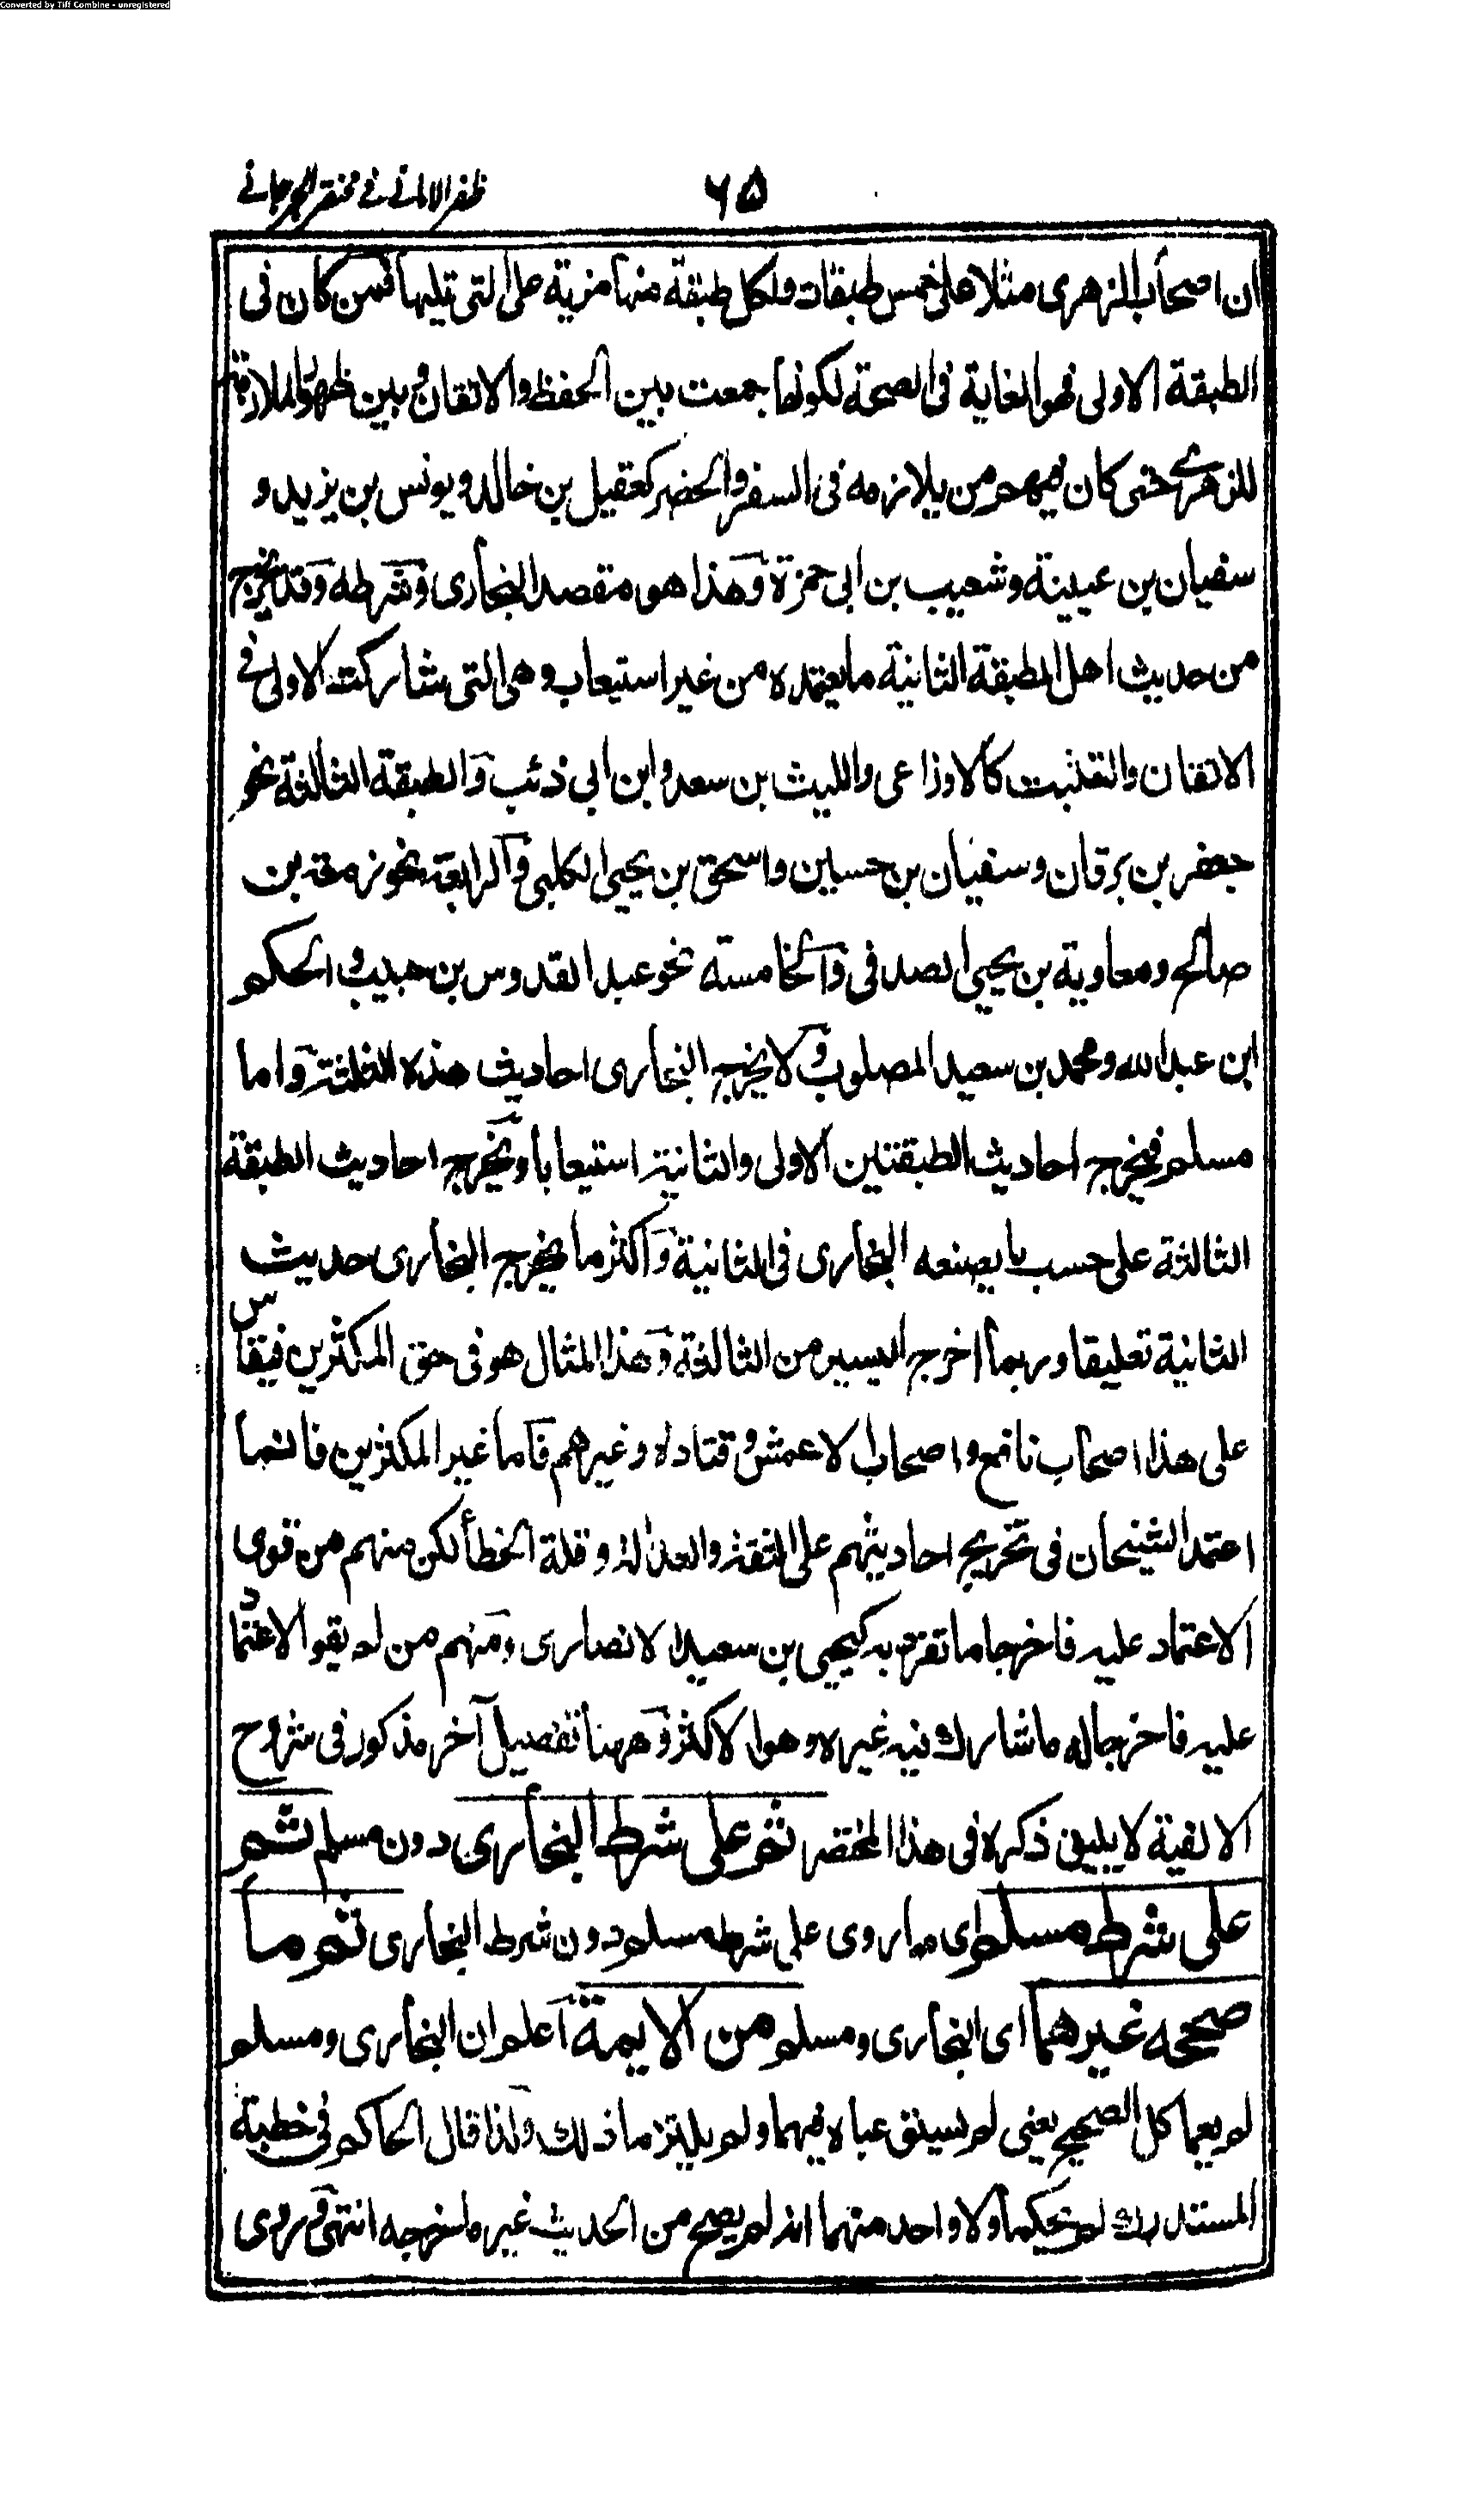 Converted by Tiff Combine - unregistered
٦٥
ظفر الامانى فى مختصر الجرجانے
ان اصحاب الزهرى مثلا على خمس طبقات ولكل طبقة منها مزية على التى تليها فمن كان فى
الطبقة الاولى فهو الغاية فى الصحة لكونها جمعت بين الحفظ والاتقان وبين طول الملازمة
للزهرے حتى كان فيهم من يلازمه فى السفر والحضر كعقيل بن خالد ويونس بن يزيد و
سفيان بن عيينة وشعيب بن ابى حمزة وهذا هو مقصد البخارى وشرطه وقد يخرج
من حديث اهل الطبقة الثانية ما يعتمده من غير استيعاب وهى التى شاركت الاولى فى
الاتقان والتثبت كالاوزاعى والليث بن سعد وابن ابى ذئب والطبقة الثالثة نحو
جعفر بن برقان وسفيان بن حسين واسحق بن يحيى الكلبى والرابعة نحو زمعة بن
صالح ومعاوية بن يحيى الصدفى والخامسة نحو عبد القدوس بن حبيب والحكم
ابن عبد الله ومحمد بن سعيد المصلوب ولا يخرج البخارى احاديث هذه الثلثة واما
مسلم فيخرج احاديث الطبقتين الاولى والثانية استيعابا ويخرج احاديث الطبقة
الثالثة على حسب ما يصنعه البخارى فى الثانية واكثر ما يخرج البخارى حديث
الثانية تعليقا وربما اخرج اليسير من الثالثة وهذا المثال هو فى حق المكثرين فيقاس
على هذا اصحاب نافع واصحاب الاعمش وقتادة وغيرهم فاما غير المكثرين فانما
اعتمد الشيخان فى تخريج احاديثهم على الثقة والعدالة وقلة الخطأ لكن منهم من قوى
الاعتماد عليه فاخرجا ما تفرد به كيحيى بن سعيد الانصارى ومنهم من لم يقو الاعتماد
عليه فاخرجا له ما شارك فيه غيره وهو الاكثر وههنا تفصيل آخر مذكور فى شروح
الالفية لا يليق ذكره فى هذا المختصر ثم على شرط البخارى دون مسلم ثم
على شرط مسلم اى ما روى على شرط مسلم دون شرط البخارى ثم ما
صححه غيرهما اى البخارى ومسلم من الايمة اعلم ان البخارى ومسلم
لم يعما كل الصحيح يعنى لم يستوعباه فيهما ولم يلتزما ذلك ولذا قال الحاكم فى خطبة
المستدرك لم يحكما ولا واحد منهما انه لم يصح من الحديث غير ما اخرجه انتهى وروى